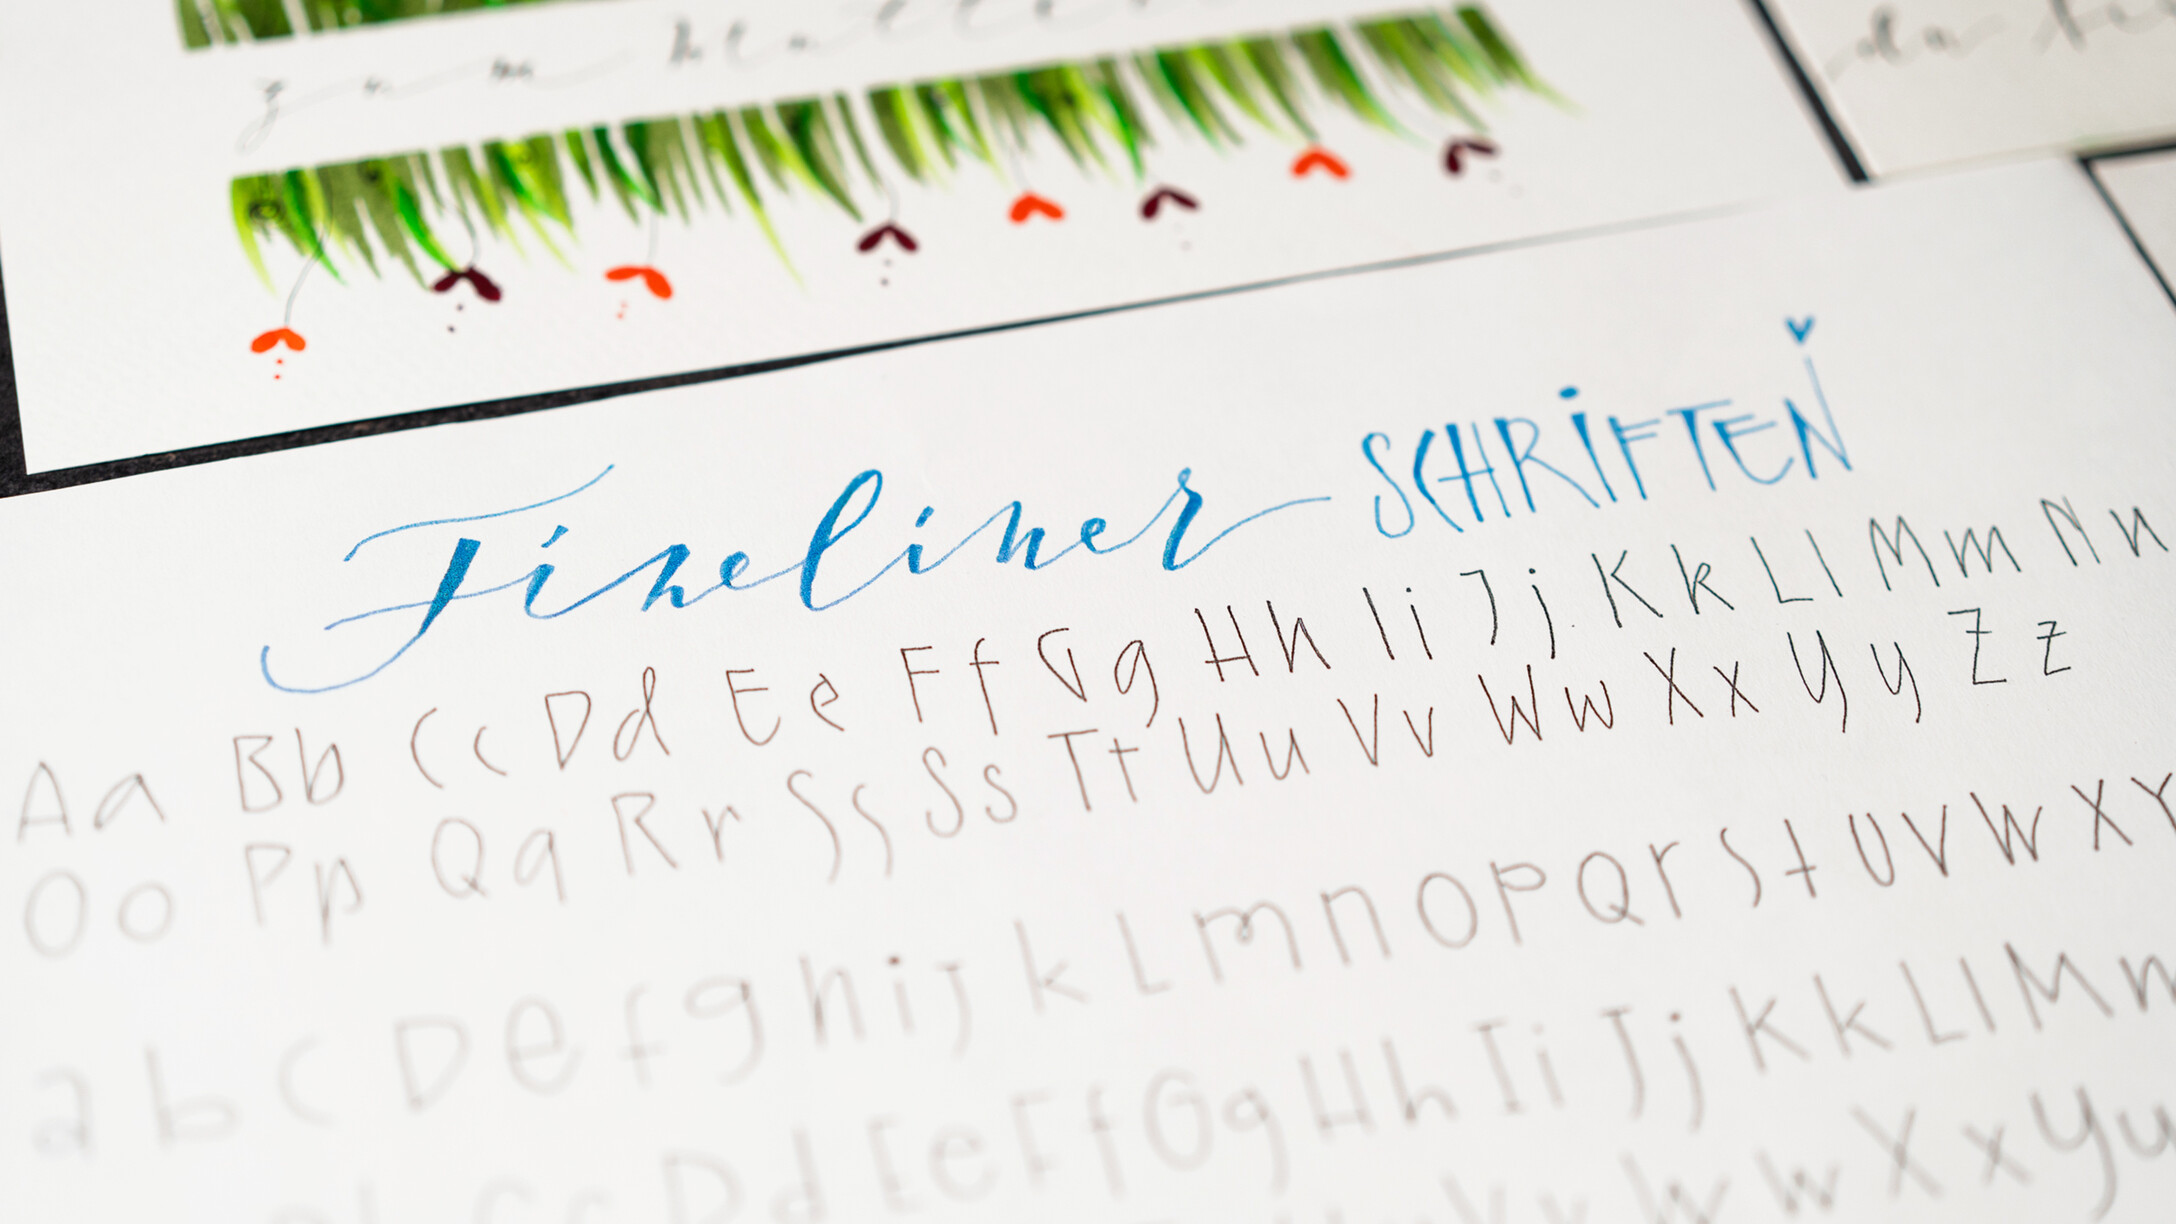 zum
Fineliner SCHRIFTEN
Aa Bb Cc Dd Ee Ff Gg Hh Ii Jj Kk Ll Mm Nn
Oo Pp Qq Rr Ss Ss Tt Uu Vv Ww Xx Yy Zz
a b c D e f g h i j k L m n O P Q r S t U V W X Y
Dd Ee Ff Gg Hh Ii Jj Kk Ll Mm
Ww Xx Yy